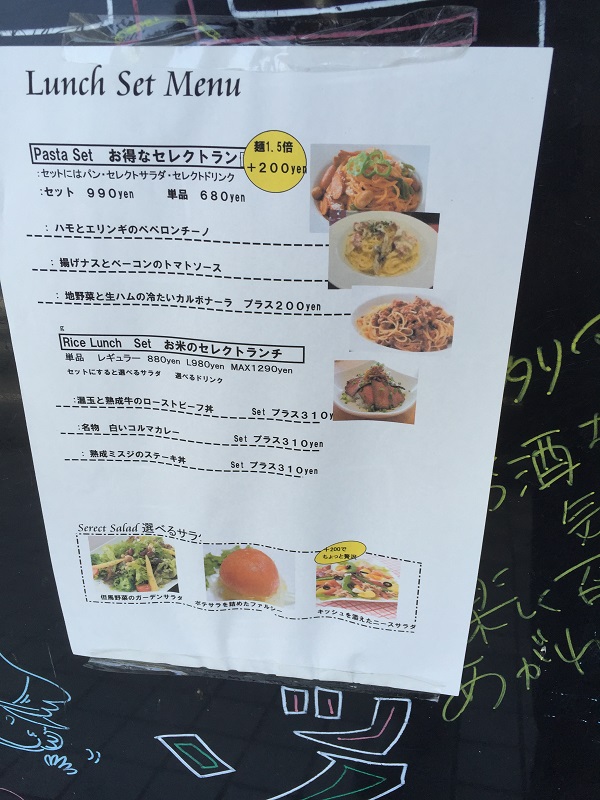 Lunch Set Menu
麺1.5倍
+200yen
Pasta Set お得なセレクトラン
:セットにはパン・セレクトサラダ・セレクトドリンク
:セット 990yen 単品 680yen
: ハモとエリンギのペペロンチーノ
: 揚げナスとベーコンのトマトソース
: 地野菜と生ハムの冷たいカルボナーラ プラス200yen
g
Rice Lunch Set お米のセレクトランチ
単品 レギュラー 880yen L980yen MAX1290yen
セットにすると選べるサラダ 選べるドリンク
:温玉と熟成牛のローストビーフ丼 Set プラス310y
:名物 白いコルマカレー Set プラス310yen
: 熟成ミスジのステーキ丼 Set プラス310yen
Serect Salad 選べるサラ
+200で
ちょっと贅沢
但馬野菜のガーデンサラダ
ポテサラを詰めたファルシー
キッシュを添えたニースサラダ
タリ
お酒
気
楽に
あがれ